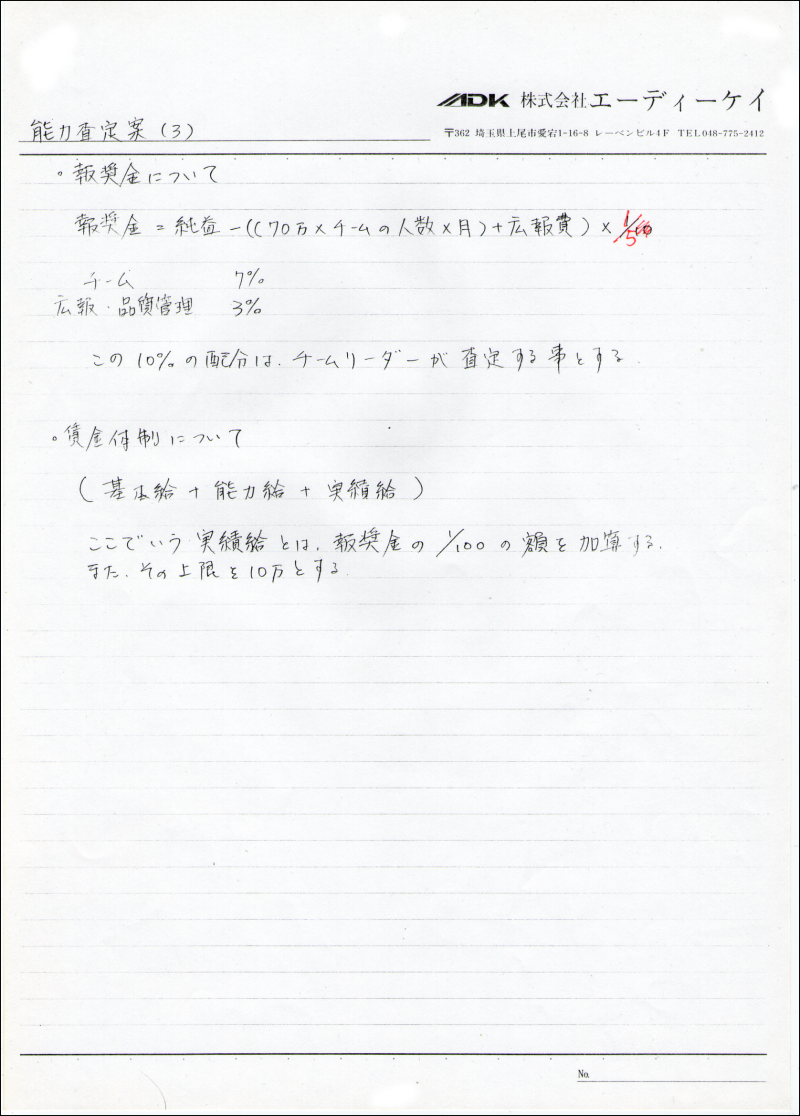 ADK 株式会社エーディーケイ
能力査定案(3)
〒362 埼玉県上尾市愛宕1-16-8 レーベンビル4F TEL048-775-2412
。報奨金について
報奨金 = 純益 - ((70万×チームの人数×月)+広報費) × 1/5
チーム 7%
広報・品質管理 3%
この10%の配分は、チームリーダーが査定する事とする.
。賃金体制について
(基本給 + 能力給 + 実績給)
ここでいう実績給とは、報奨金の1/100の額を加算する.
また、その上限を10万とする.
No.